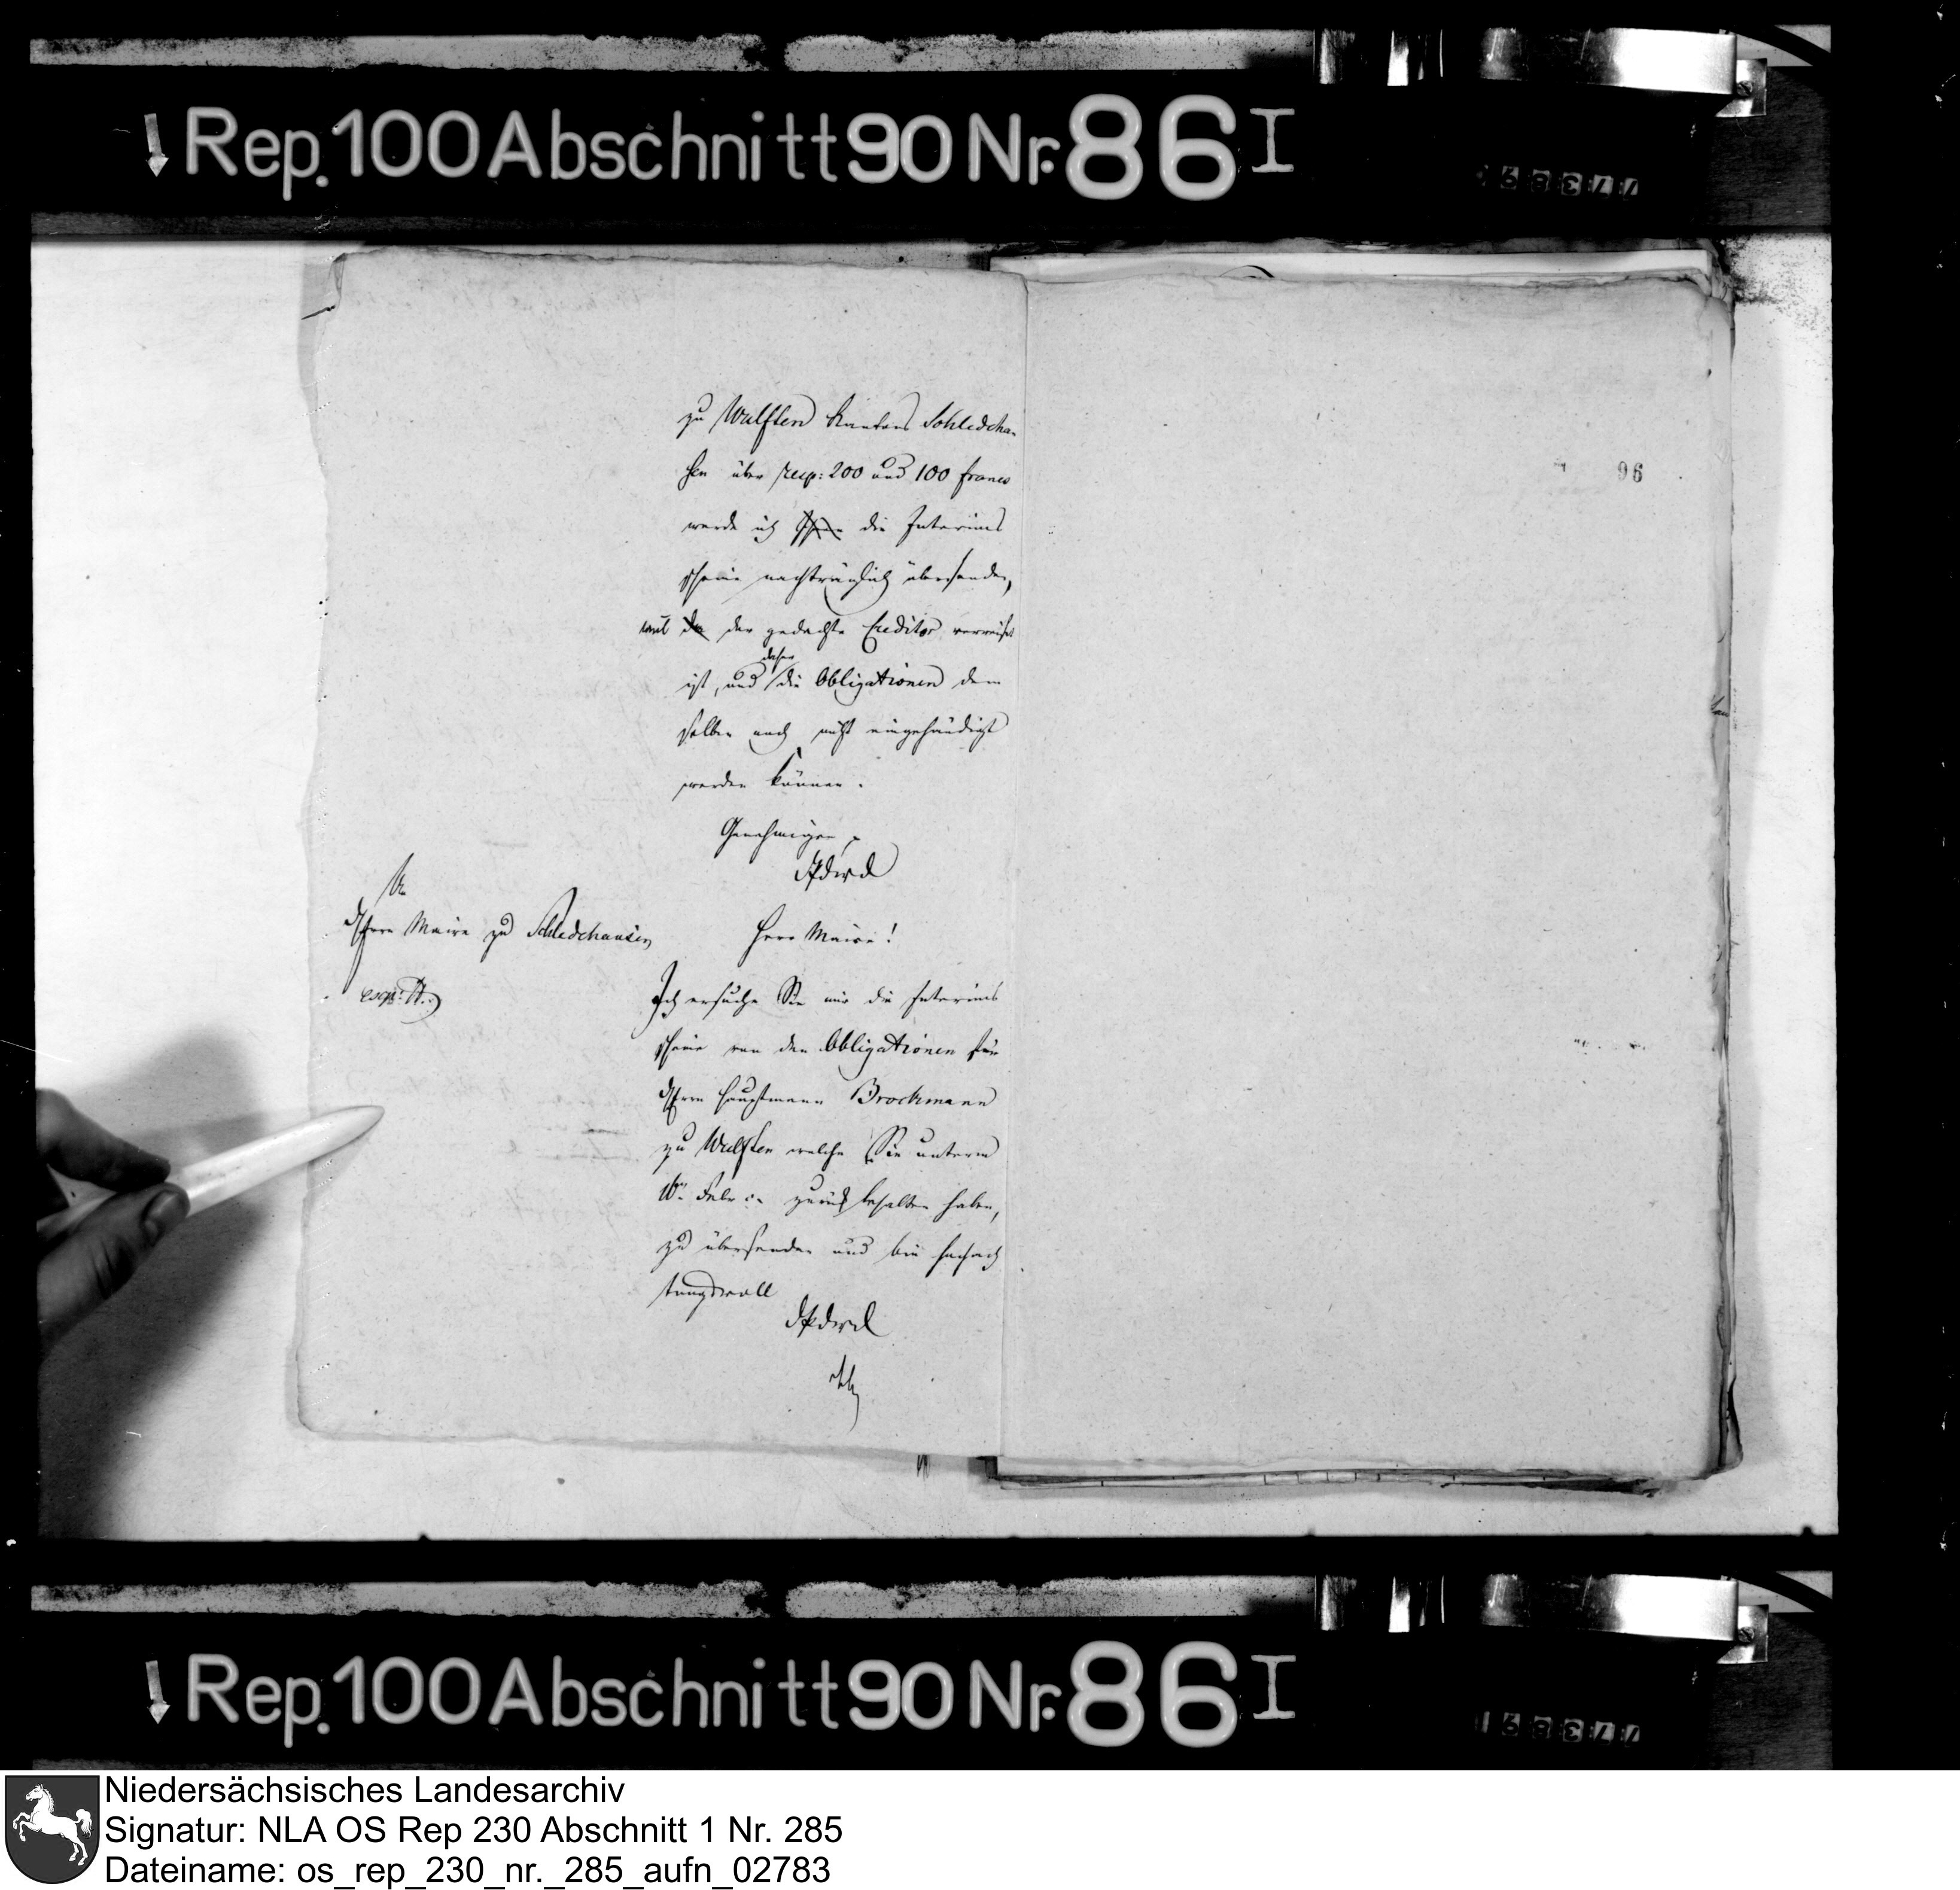 Rep. 100 Abschnitt 90 Nr. 86 I
zu Wulften Kantons Schledehau-
sen über resp: 200 und 100 francs
werde ich die Interims
scheine nachträglich übersenden,
weil der gedachte Creditor verreiset
daher
ist, und die Obligationen dem
selben noch nicht eingehändigt
werden können.
Genehmigen
96
An
Herrn Maire zu Schledehausen
Herr Maire!
Ich ersuche Sie mir die Interims
scheine von den Obligationen für
Herrn Hauptmann Brockmann
zu Wulften welche Sie unterm
Febr. zurück behalten haben,
zu übersenden und bin hochach
tungsvoll
Rep. 100 Abschnitt 90 Nr. 86 I
Niedersächsisches Landesarchiv
Signatur: NLA OS Rep 230 Abschnitt 1 Nr. 285
Dateiname: os_rep_230_nr._285_aufn_02783